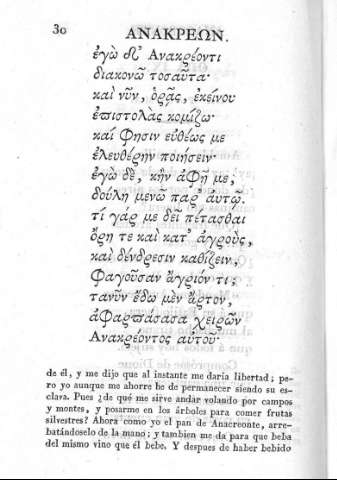 30 ΑΝΑΚΡΕΩΝ.
ἐγὼ δ' Ανακρέοντι
διακονῶ τοσαῦτα·
καὶ νῦν, ὁρᾷς, ἐκείνου
ἐπιστολὰς κομίζω·
καί φησιν εὐθέως με
ἐλευθέρην ποιήσειν·
ἐγὼ δὲ, κἢν ἀφῇ με,
δούλη μενῶ παρ' αὐτῷ.
τί γάρ με δεῖ πέτασθαι
ὄρη τε καὶ κατ' ἀγροὺς,
καὶ δένδρεσιν καθίζειν,
φαγοῦσαν ἄγριόν τι;
τανῦν ἔδω μὲν ἄρτον,
ἀφαρπάσασα χειρῶν
Ανακρέοντος αὐτοῦ·
de él, y me dijo que al instante me daría libertad; pe-
ro yo aunque me ahorre he de permanecer siendo su es-
clava. Pues ¿de qué me sirve andar volando por campos
y montes, y posarme en los árboles para comer frutas
silvestres? Ahora como yo el pan de Anacreonte, arre-
batándoselo de la mano; y tambien me da para que beba
del mismo vino que él bebe. Y despues de haber bebido